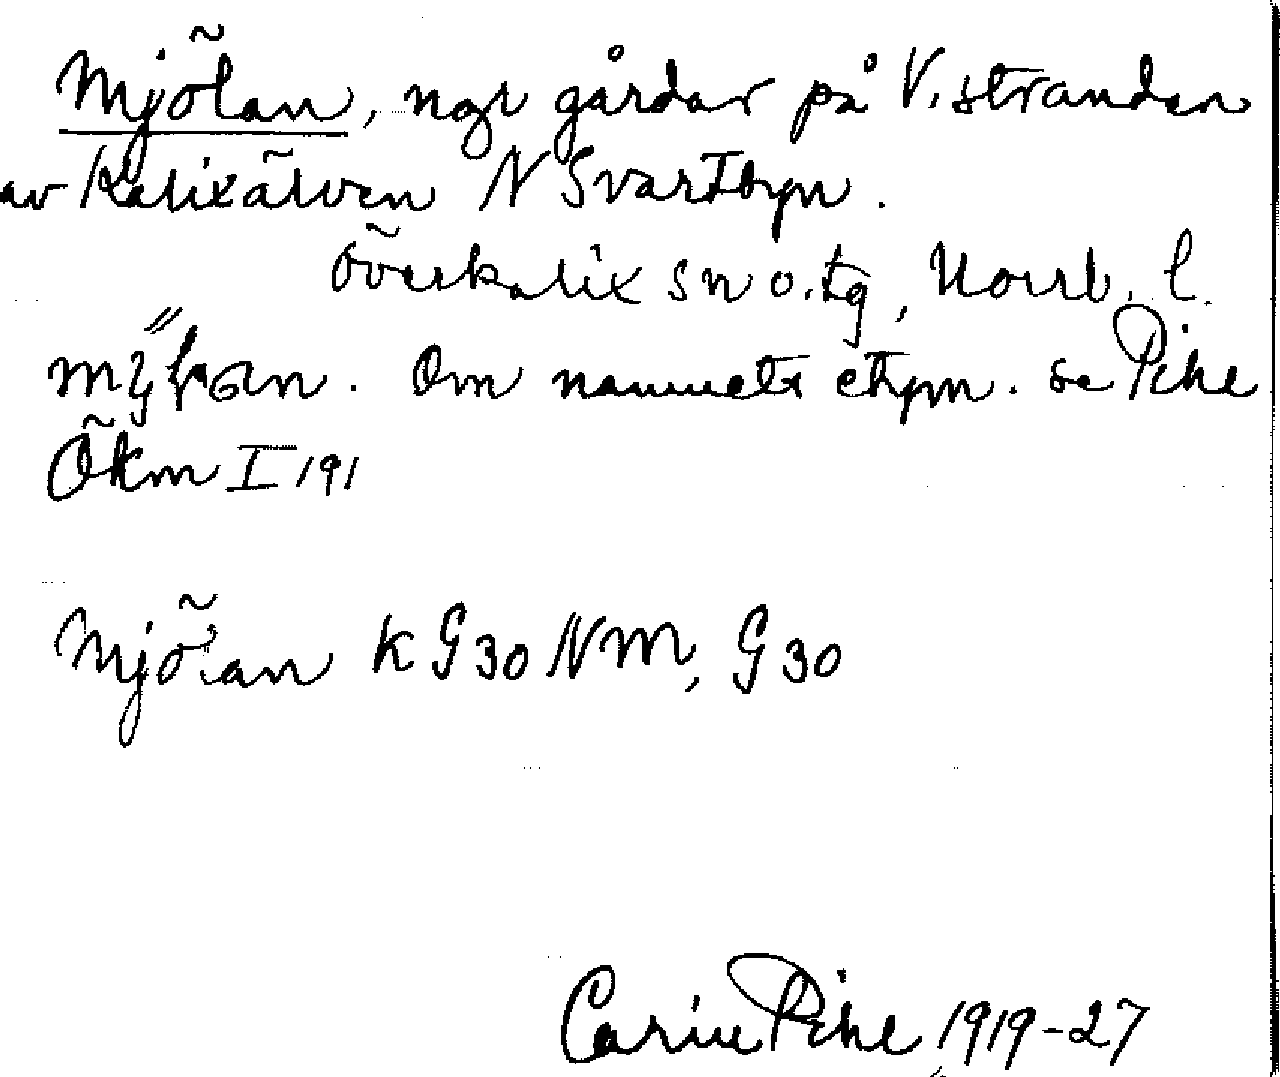 Mjölan, ngr gårdar på V. stranden
av Kalixälven N Svartbyn.
Överkalix sn o. tg, Norrb. l.
Om namnets etym. se Pihl
Ökm I 191
Mjölan K G30 NM, G30
Carin Pihl 1919-27